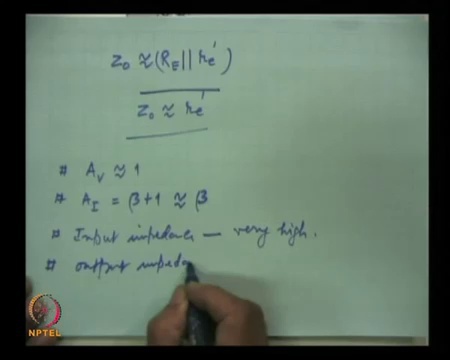 Z₀ ≈ (R_E || r_e')
Z₀ ≈ r_e'
# A_V ≈ 1
# A_I = β+1 ≈ β
# Input impedance — very high.
# output impeda
NPTEL